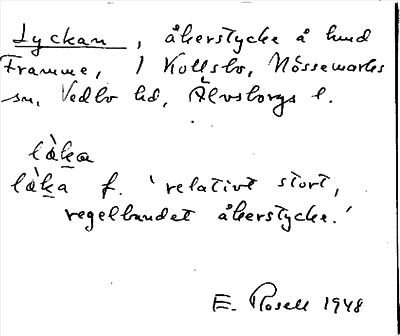 Lyckan, åkerstycke å hmd
Framme, 1 Kollsbo, Nössemarks
sn, Vedbo hd, Älvsborgs l.
lȧ̀ka
lȧ̀ka f. 'relativt stort,
regelbundet åkerstycke.'
E. Rosell 1948